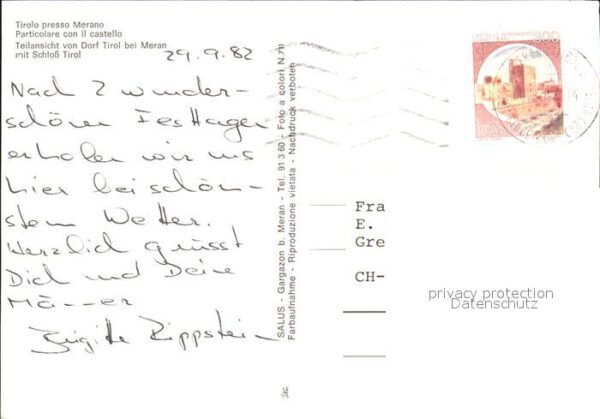 Tirolo presso Merano
Particolare con il castello
Teilansicht von Dorf Tirol bei Meran
mit Schloß Tirol
29.9.82
Nach 2 wunder-
schönen Festtagen
erholen wir uns
hier bei schön-
stem Wetter.
Herzlich grüsst
Dich und Deine
Männer
Brigitte Rippstein
SALUS - Gargazon b. Meran - Tel. 91360 - Foto a colori N.
Farbaufnahme - Riproduzione vietata - Nachdruck verboten
Fra
E.
Gre
CH-
privacy protection
Datenschutz